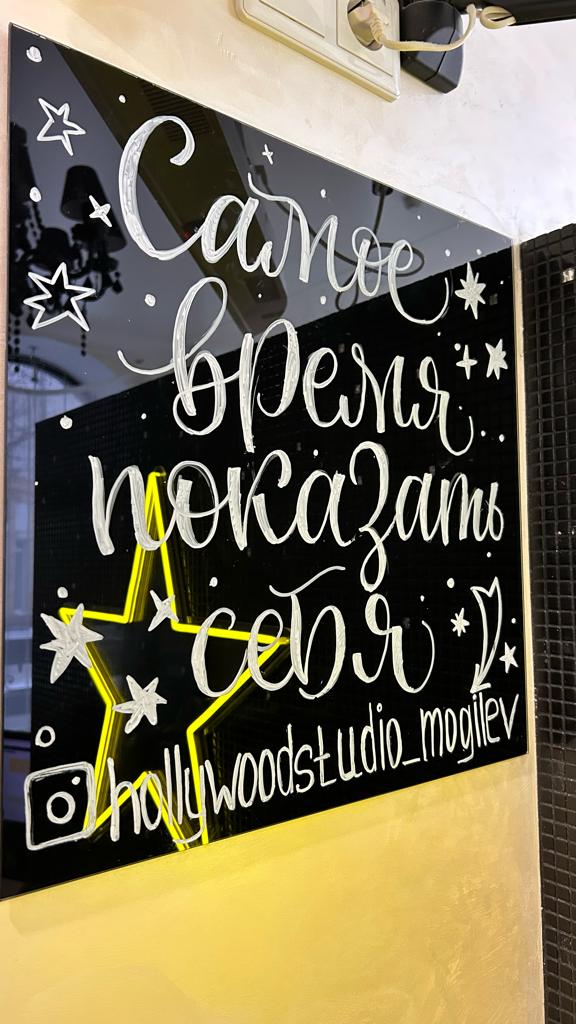 Самое
время
показать
себя
hollywoodstudio_mogilev